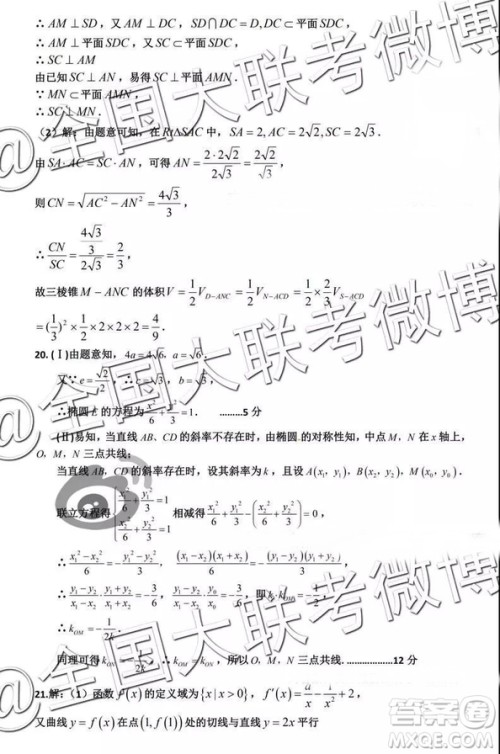 ∴ AM ⊥ SD，又 AM ⊥ DC，SD∩DC = D, DC ⊂ 平面 SDC
∴ AM ⊥ 平面 SDC，又 SC ⊂ 平面 SDC，
∴ SC ⊥ AM
由已知 SC ⊥ AN，易得 SC ⊥ 平面 AMN.
∵ MN ⊂ 平面 AMN，
∴ SC ⊥ MN.
（2）解：由题意可知，在 RtΔSAC 中，SA = 2, AC = 2√2, SC = 2√3 .
由 SA·AC = SC·AN，可得 AN = (2·2√2)/(2√3) = 2√2/√3，
则 CN = √(AC² − AN²) = 4√3/3，
∴ CN/SC = (4√3/3)/(2√3) = 2/3，
故三棱锥 M − ANC 的体积 V = 1/2 V_{D−ANC} = 1/2 V_{N−ACD} = 1/2 × 2/3 V_{S−ACD}
= (1/3)² × 1/2 × 2 × 2 × 2 = 4/9 .
20. (Ⅰ)由题意知，4a = 4√6，a = √6 .
又∵ e = √2/2，∴ c = √3，b = √3，
∴椭圆 E 的方程为 x²/6 + y²/3 = 1. ………5 分
(Ⅱ)易知，当直线 AB、CD 的斜率不存在时，由椭圆的对称性知，中点 M，N 在 x 轴上，
O，M，N 三点共线；
当直线 AB，CD 的斜率存在时，设其斜率为 k，且设 A(x₁, y₁)，B(x₂, y₂)，M(x₀, y₀).
联立方程得 { x₁²/6 + y₁²/3 = 1, x₂²/6 + y₂²/3 = 1 相减得 x₁²/6 + y₁²/3 − (x₂²/6 + y₂²/3) = 0，
∴ (x₁² − x₂²)/6 = −(y₁² − y₂²)/3，(x₁ − x₂)(x₁ + x₂)/6 = −(y₁ − y₂)(y₁ + y₂)/3，
∴ (y₁ − y₂)/(x₁ − x₂) · (y₁ + y₂)/(x₁ + x₂) = −3/6，(y₁ − y₂)/(x₁ − x₂) · y₀/x₀ = −3/6，即 k·k_{OM} = −
∴ k_{OM} = −1/(2k)
同理可得 k_{ON} = −1/(2k)，∴ k_{OM} = k_{ON}，所以 O，M，N 三点共线. ………………12 分
21.解:（1）函数 f(x) 的定义域为 {x | x > 0}，f′(x) = a/x − 1/x² + 2，
又曲线 y = f(x) 在点 (1, f(1)) 处的切线与直线 y = 2x 平行
@全国大联考微博
@全国大联考微博
@全国大联考微博
答案圈
MXQE.COM